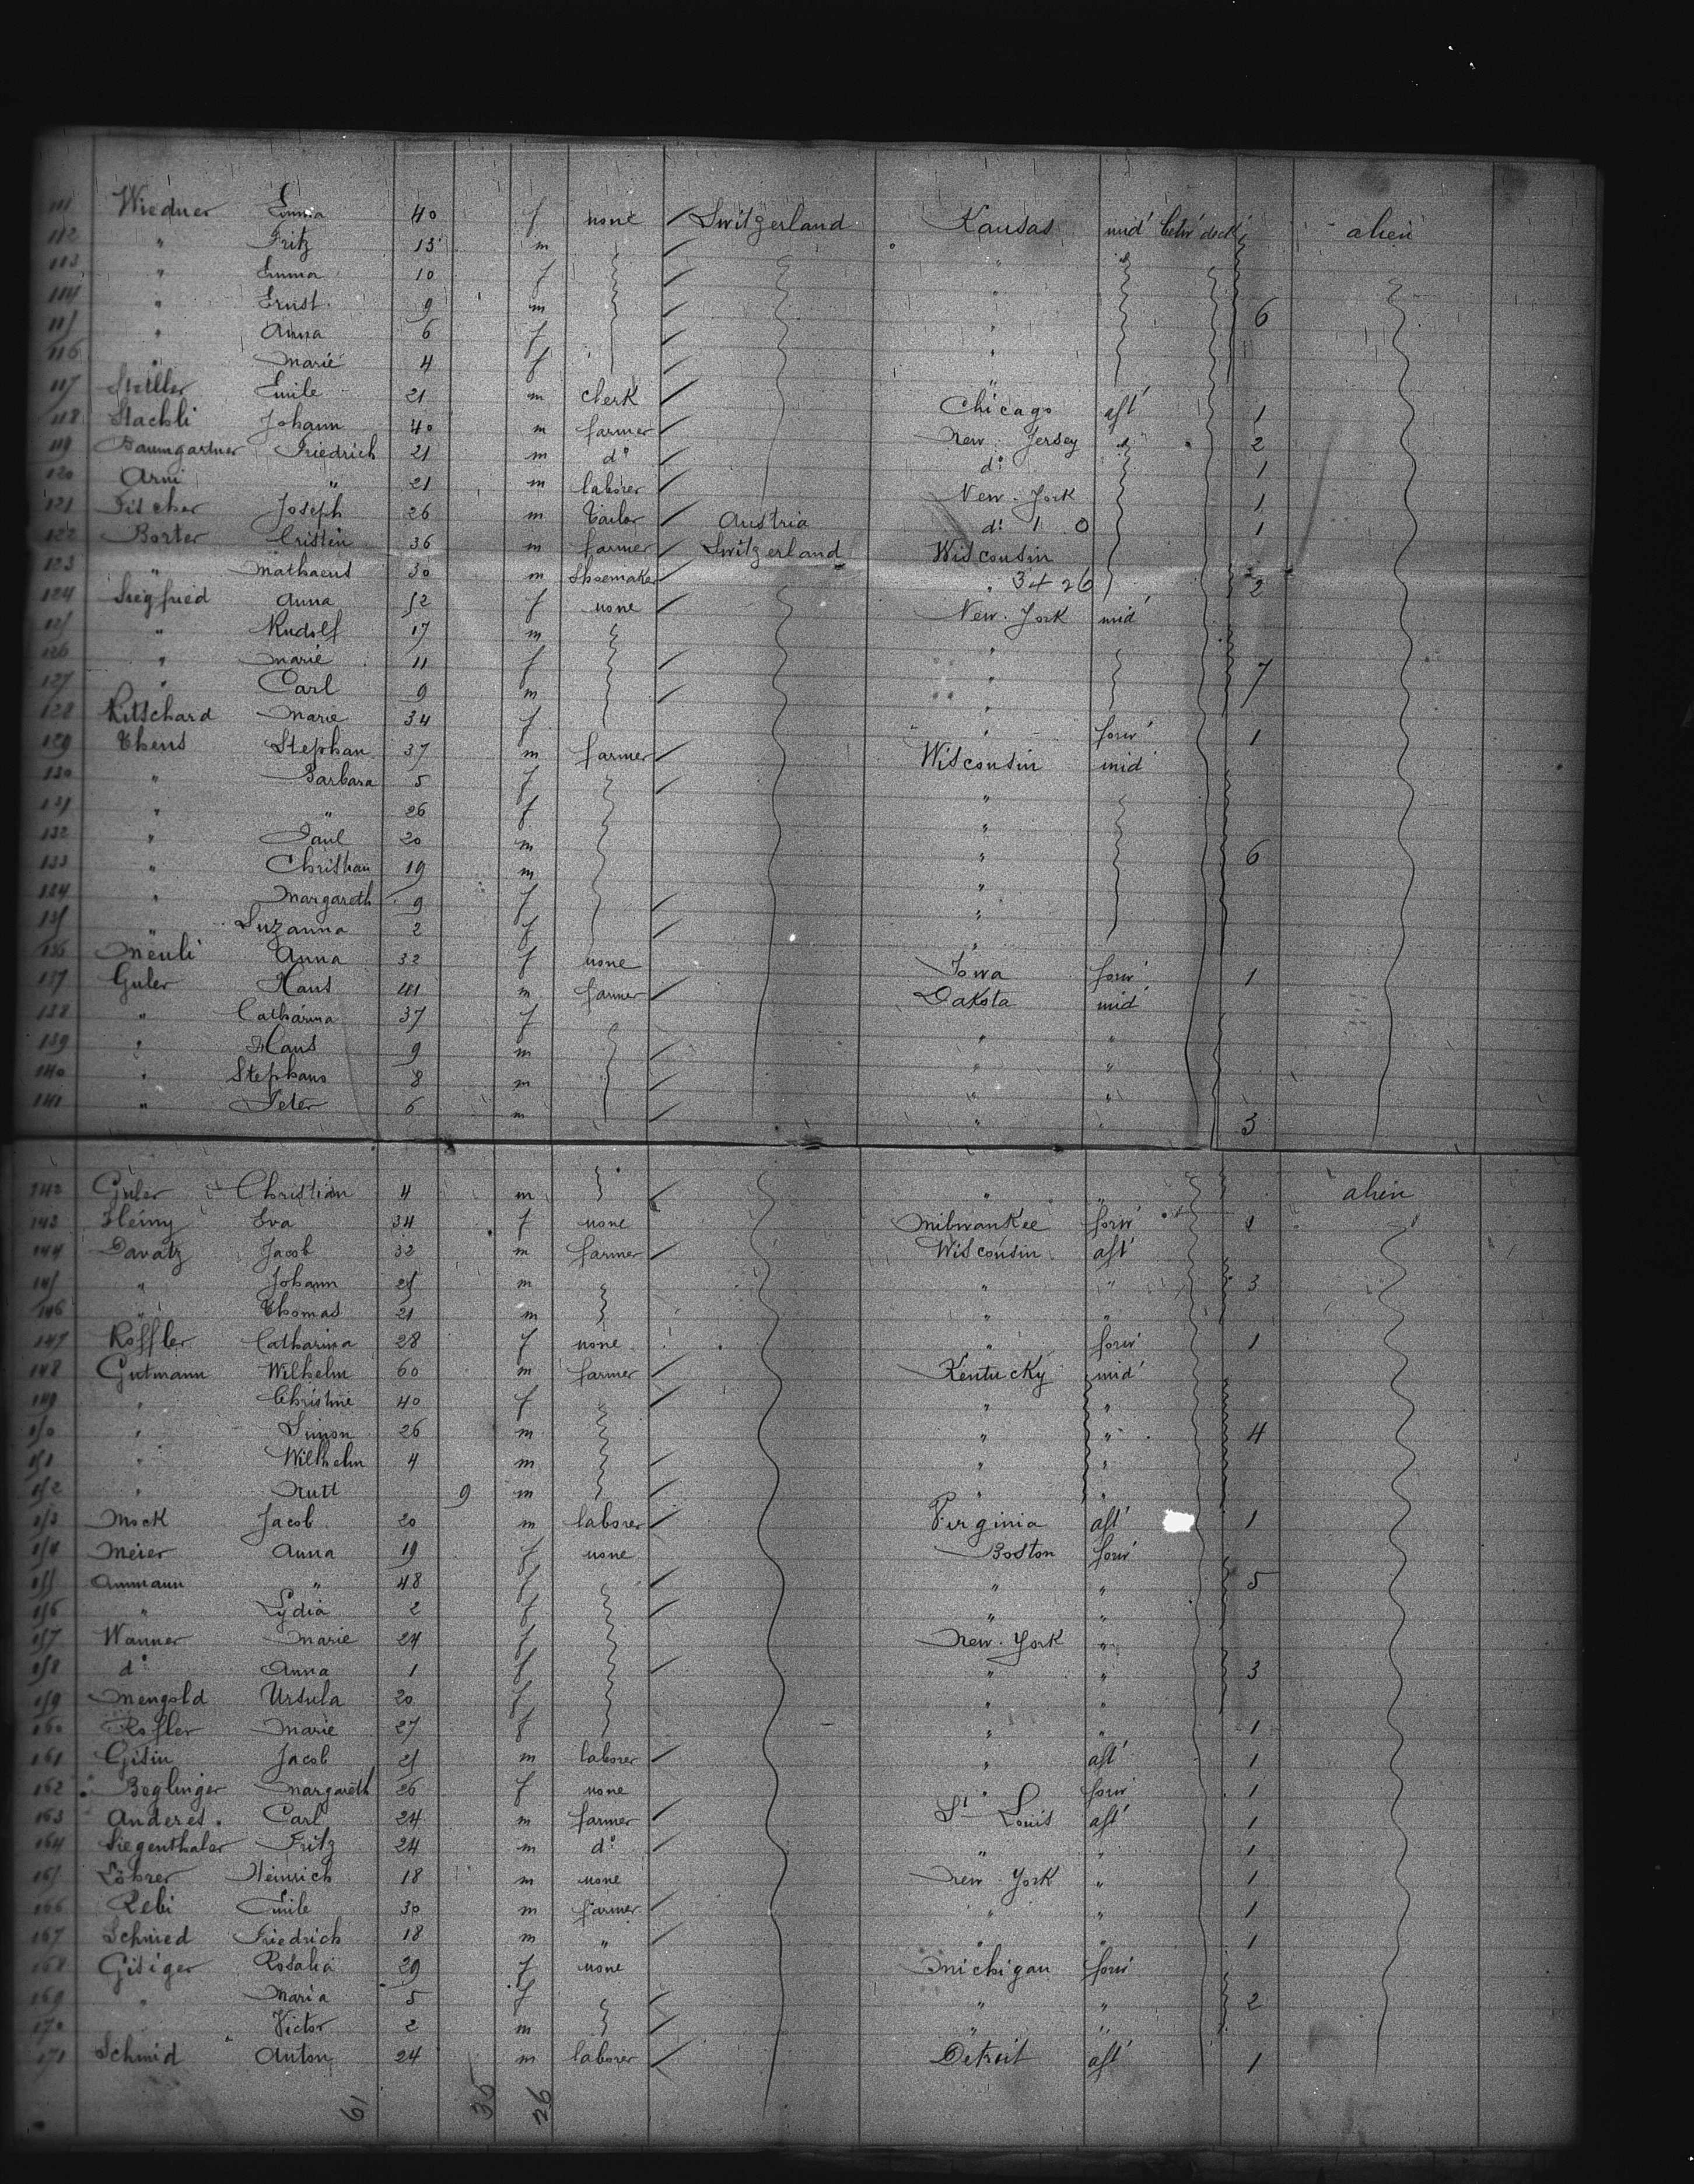 111 Wiedner Emma 40 f none Switzerland Kansas mid' betw' deck' alien
112 " Fritz 13 m "
113 " Emma 10 f "
114 " Ernst 9 m " 6
115 " Anna 6 f "
116 " Marie 4 f "
117 Emile 21 m clerk Chicago aft' 1
118 Johann 40 m farmer New Jersey 2
119 Baumgartner Friedrich 21 m do do 1
120 Arni " 21 m laborer New-York 1
121 Fischer Joseph 26 m Tailor Austria do 1 0 1
122 Borter Cristen 36 m farmer Switzerland Wisconsin
123 " Mathaeus 30 m Shoemaker " 3426 2
124 Siegfried Anna 52 f none New-York mid'
125 " Rudolf 17 m "
126 " Marie 11 f " 7
127 " Carl 9 m "
128 Ritschard Marie 34 f " forw' 1
129 Thens Stephan 37 m farmer Wisconsin mid'
130 " Barbara 5 f "
131 " " 26 f "
132 " Paul 20 m " 6
133 " Christian 19 m "
134 " Margareth 9 f "
135 " Suzanna 2 f "
136 Meuli Anna 32 f none Iowa forw' 1
137 Guler Hans 41 m farmer Dakota mid'
138 " Catharina 37 f
139 " Hans 9 m " "
140 " Stephans 8 m " "
141 " Peter 6 m " " 3
142 Guler Christian 4 m " " alien
143 Heiny Eva 34 f none Milwaukee forw' 1
144 Davatz Jacob 32 m farmer Wisconsin aft'
145 " Johann 25 m " " 3
146 " Thomas 21 m " "
147 Roffler Catharina 28 f none " forw' 1
148 Gutmann Wilhelm 60 m farmer Kentucky mid'
149 " Christine 40 f " "
150 " Simon 26 m " " 4
151 " Wilhelm 4 m " "
152 " 9 m " "
153 Mock Jacob 20 m laborer Virginia aft' 1
154 Meier Anna 19 f none Boston forw'
155 Ammann " 48 f " " 5
156 " Lydia 2 f " "
157 Wanner Marie 24 f New-York "
158 do Anna 1 f " " 3
159 Mengold Ursula 20 f " "
160 Rofler Marie 27 f " " 1
161 Gisin Jacob 25 m laborer " aft' 1
162 Beglinger Margareth 26 f none " forw' 1
163 Anderes Carl 24 m farmer St Louis aft' 1
164 Siegenthaler Fritz 24 m do " " 1
165 Löhrer Heinrich 18 m none New York " 1
166 Rebi Emile 30 m farmer " " 1
167 Schmied Friedrich 18 m " " " 1
168 Gisiger Rosalia 29 f none Michigan forw'
169 " Maria 5 f " " 2
170 " Victor 2 m " "
171 Schmid Anton 24 m laborer Detroit aft' 1
61 35 26